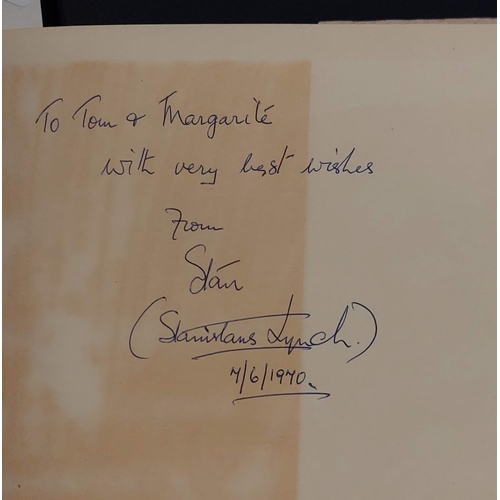 To Tom & Margarité
with very best wishes
From
Stán
(Stanislaus Lynch.)
7/6/1970.